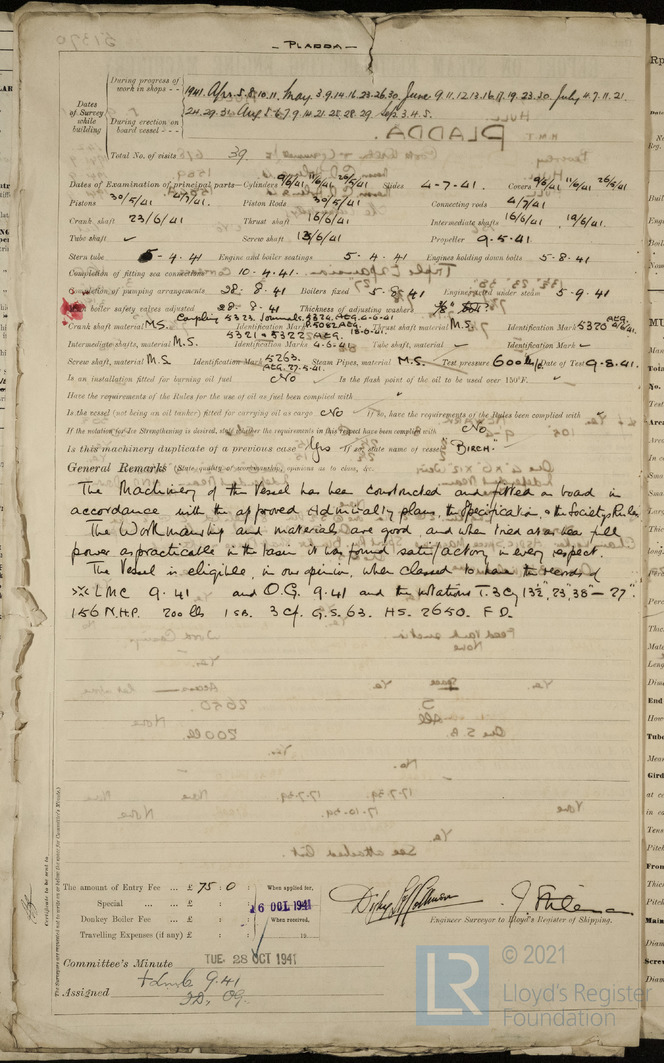 — PLADDA —
Dates of Survey while building
During progress of work in shops - -
1941. Apr. 5.8.10.11. May 3.9.14.16.23.26.30. June 9.11.12.13.16.17.19.23.30. July 4.7.11.21.
24.29.31. Aug 5.6.7.9.14.21.25.28.29. Sep. 3.4.5.
During erection on board vessel - - -
Total No. of visits 39
Dates of Examination of principal parts—Cylinders 9/6/41 11/6/41 26/5/41 Slides 4-7-41. Covers 9/6/41 11/6/41 26/5/41
Pistons 30/5/41 4/7/41. Piston Rods 30/5/41 Connecting rods 4/7/41
Crank shaft 23/6/41 Thrust shaft 16/6/41 Intermediate shafts 16/6/41, 19/6/41.
Tube shaft ✓ Screw shaft 13/6/41 Propeller 9-5-41.
Stern tube 5-4-41 Engine and boiler seatings 5-4-41 Engines holding down bolts 5-8-41
Completion of fitting sea connections 10-4-41.
Completion of pumping arrangements 28-8-41 Boilers fixed 5-8-41 Engines tried under steam 5-9-41
Main boiler safety valves adjusted 28-8-41 Thickness of adjusting washers 3/8"
Crank shaft material M.S. Identification Mark Coupling 5323. Journals. 5324. ACG. 6-6-41 R5062 ACG. 18-6-41. Thrust shaft material M.S. Identification Mark 5320 ACG.
Intermediate shafts, material M.S. Identification Marks 5321 & 5322 ACG. 4-6-41 Tube shaft, material ✓ Identification Mark ✓
Screw shaft, material M.S Identification Mark 5263. ACG. 27.5.41. Steam Pipes, material M.S. Test pressure 600 lb/□" Date of Test 9.8.41.
Is an installation fitted for burning oil fuel No Is the flash point of the oil to be used over 150°F. ✓
Have the requirements of the Rules for the use of oil as fuel been complied with ✓
Is the vessel (not being an oil tanker) fitted for carrying oil as cargo No If so, have the requirements of the Rules been complied with ✓
If the notation for Ice Strengthening is desired, state whether the requirements in this respect have been complied with No
Is this machinery duplicate of a previous case Yes If so, state name of vessel "BIRCH."
General Remarks (State quality of workmanship, opinions as to class, &c.
The Machinery of this Vessel has been constructed and fitted on board in
accordance with the approved Admiralty plans, the Specification, & the Society's Rules
The Workmanship and materials are good, and when tried at as near full
power as practicable in the basin it was found satisfactory in every respect.
The Vessel is eligible, in our opinion, when classed to have the record of
✠ LMC 9.41 and O.G. 9.41 and the notations T. 3 Cy 13½", 23", 38" — 27"
156 N.H.P. 200 lbs 1 SB. 3 Cf. G.S. 63. HS. 2650. F.D.
The amount of Entry Fee ... £ 75 : 0 :
Special ... £ : :
Donkey Boiler Fee ... £ : :
Travelling Expenses (if any) £ : :
When applied for,
16 OCT. 1941
When received,
19
Engineer Surveyor to Lloyd's Register of Shipping.
Committee's Minute TUE. 28 OCT 1941
Assigned + Lmc 9.41
FD, OG.
Certificate to be sent to
The Surveyors are requested not to write on or below the space for Committee's Minute.
LR © 2021
Lloyd's Register
Foundation